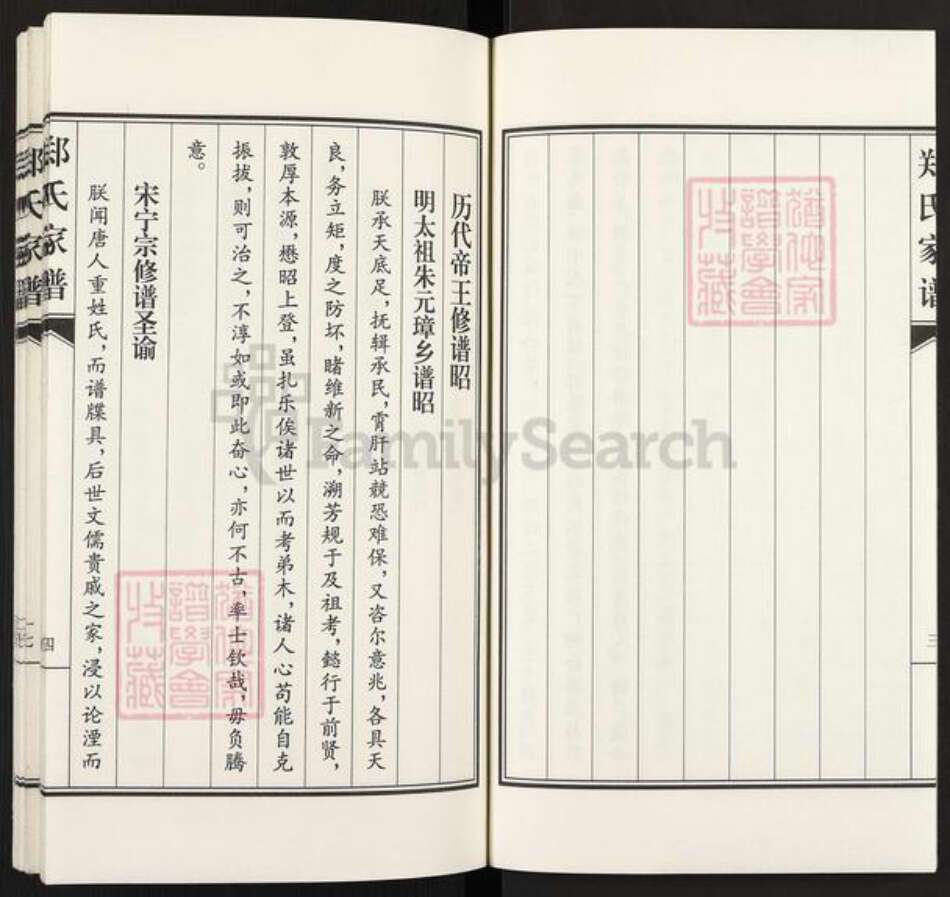 郑氏家谱
三
历代帝王修谱昭
明太祖朱元璋乡谱昭
朕承天底足，抚辑承民，霄肝站兢恐难保，又咨尔意兆，各具天
良，务立矩，度之防坏，睹维新之命，溯芳规于及祖考，懿行于前贤，
敦厚本源，懋昭上登，虽扎乐俟诸世以而考弟木，诸人心苟能自克
振拔，则可治之，不淳如或即此奋心，亦何不古，率士钦哉，毋负腾
意。
宋宁宗修谱圣谕
朕闻唐人重姓氏，而谱牒具，后世文儒贵戚之家，浸以论湮而
郑氏家谱
四
郑氏家谱
FamilySearch
譜學會
收藏
譜學會
收藏